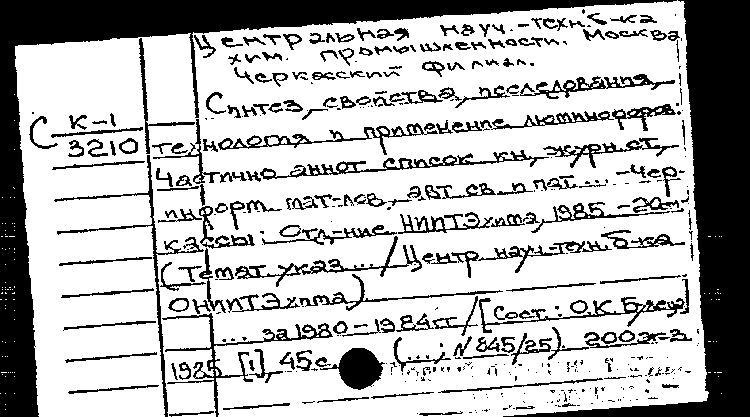 Центральная науч.-техн. б-ка
хим. промышленности. Москва
Черкасский филиал.
Синтез, свойства, исследования,
С К-1
3210
технология и применение люминофоров:
Частично аннот. список кн., журн. ст.,
информ. мат-лов, авт. св. и пат. ... -Чер-
кассы: Отд-ние НИИТЭхима, 1985. -20 
(Темат. указ ... / Центр. науч.-техн. б-ка
ОНИИТЭхима)
... за 1980-1984 гг / [Сост.: О.К.
1985 [1], 45 с. (...; N 845/25). 200 экз